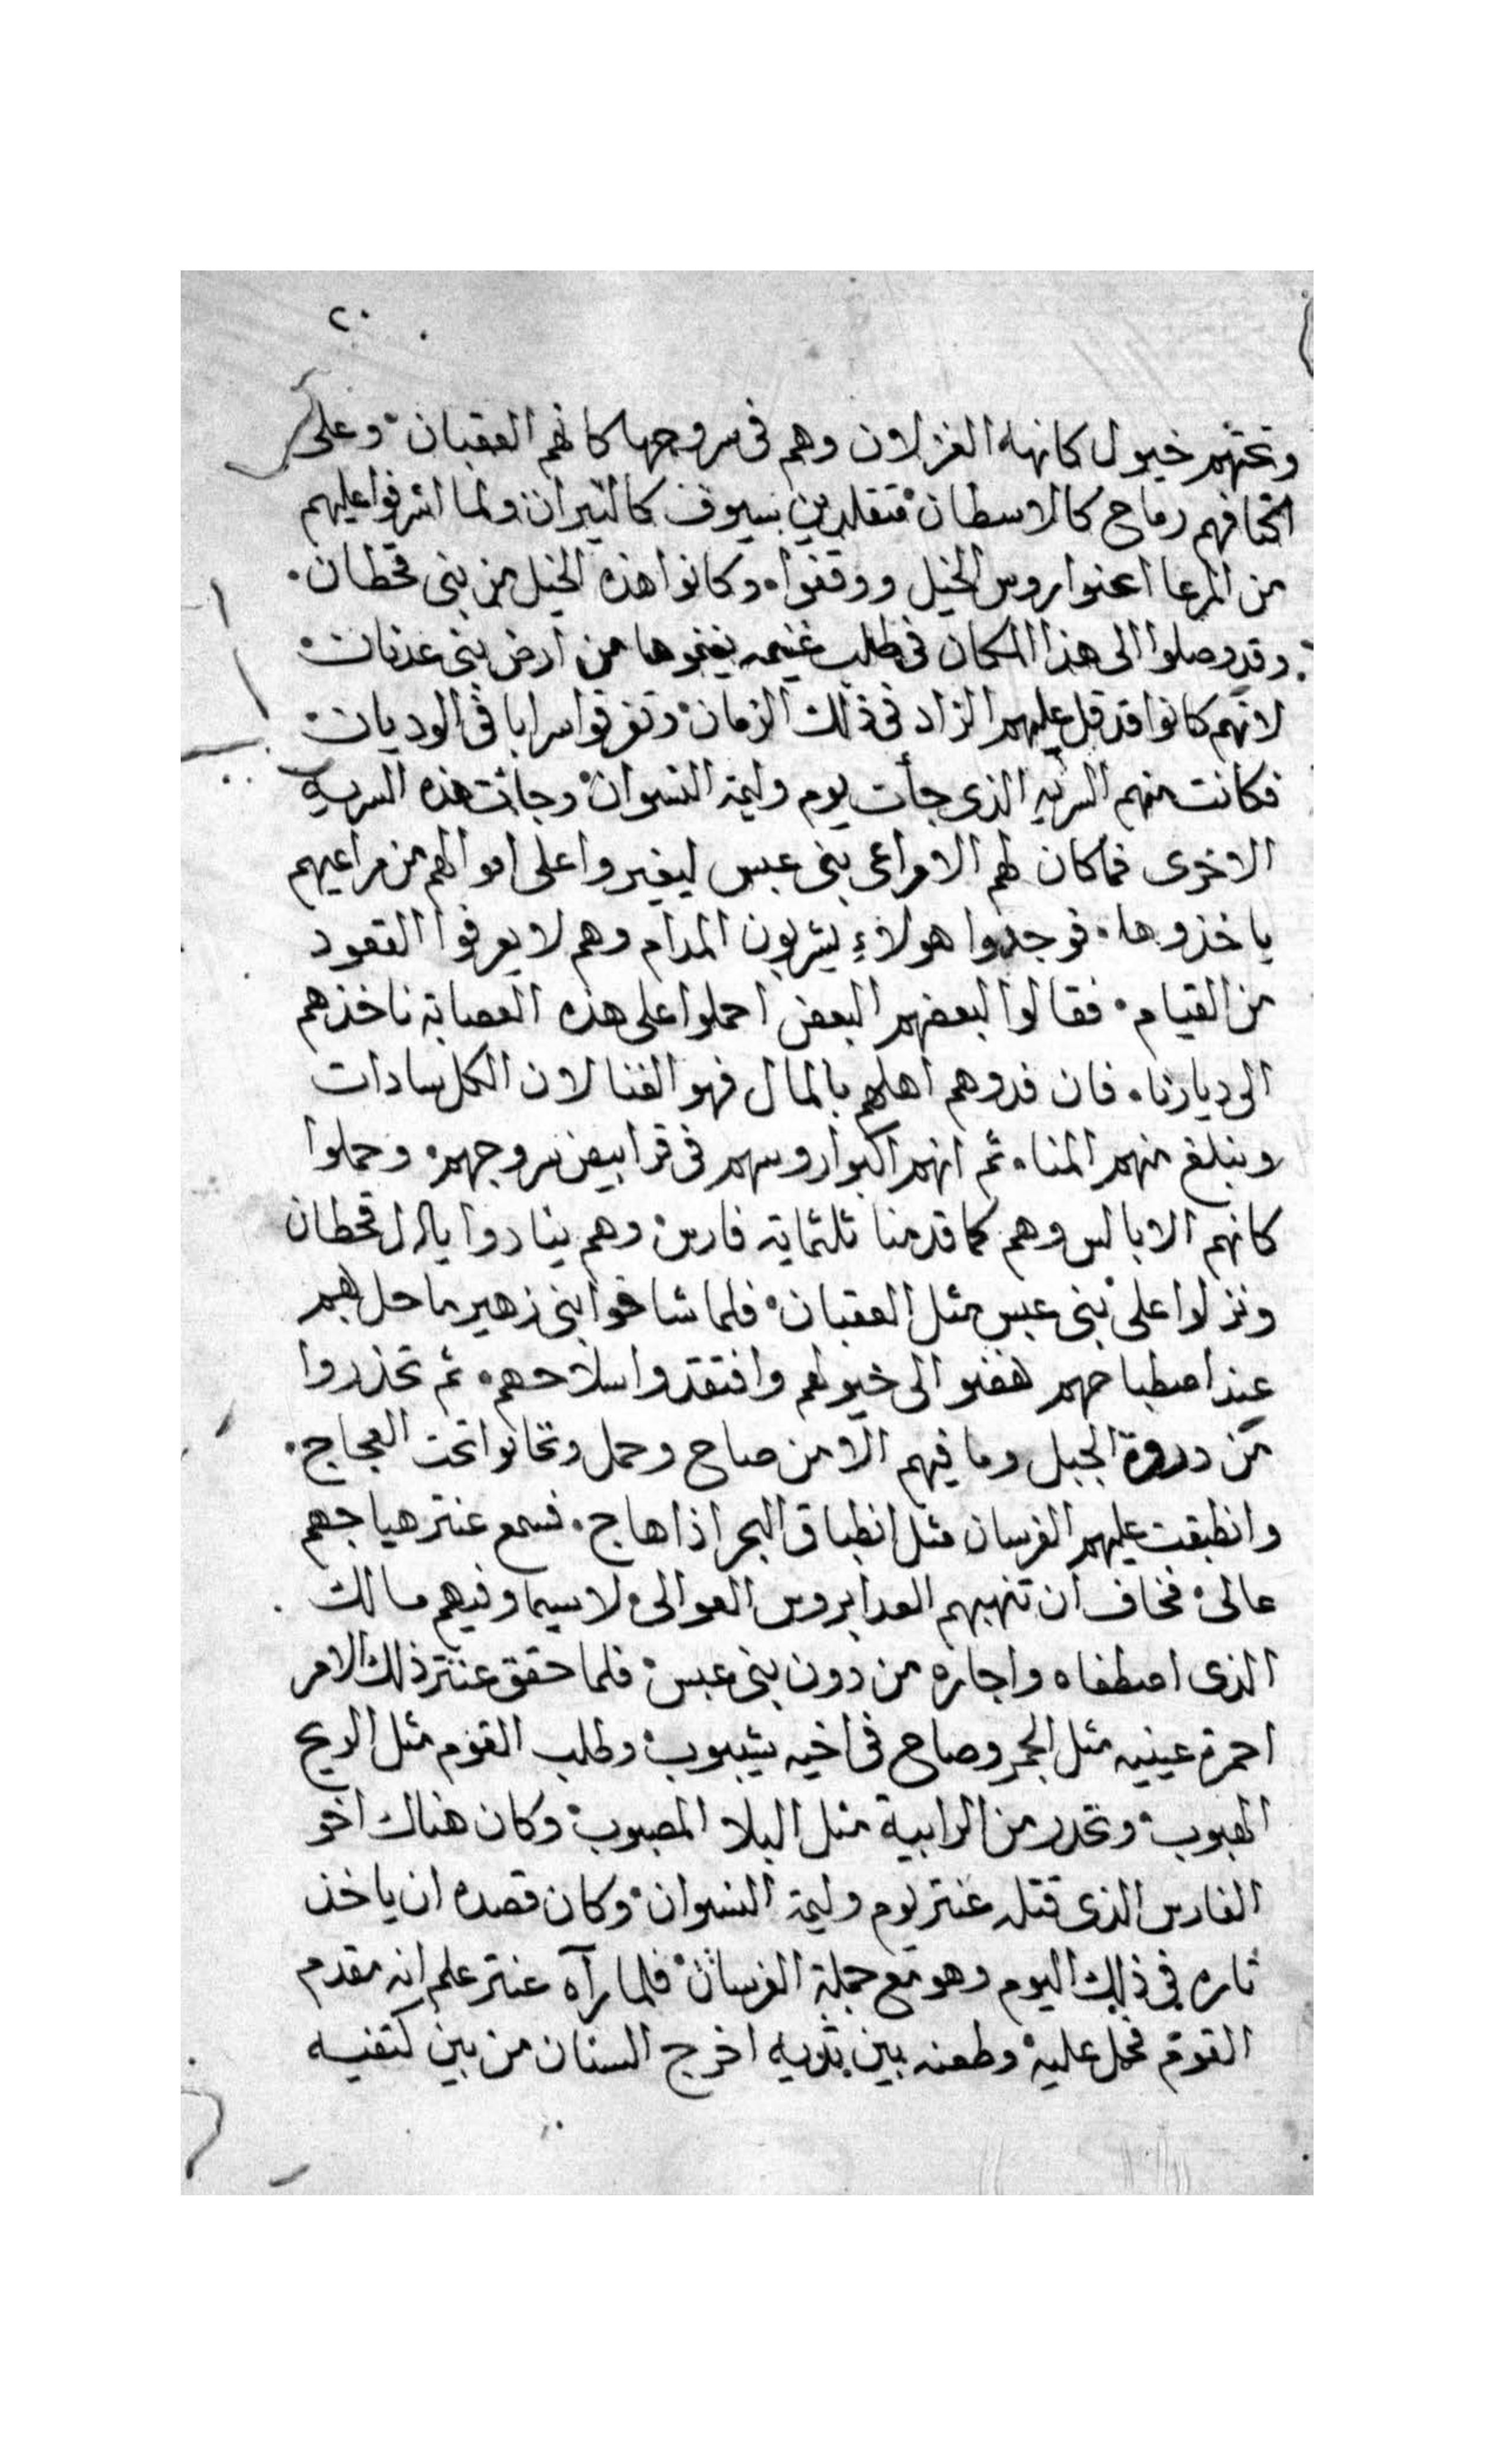 ٢٠
وتحتهم خيول كانها الغزلان وهم فى سروجها كانهم العقبان وعلى
اكتافهم رماح كالاسطان متقلدين بسيوف كالنيران ولما اشرفوا عليهم
من المرعا اعنوا روس الخيل ووقفوا وكانوا هذه الخيل من بنى قحطان
وقد وصلوا الى هذا المكان فى طلب غنيمه يغنموها من ارض بنى عدنان
لانهم كانوا قد قل عليهم الزاد فى ذلك الزمان وتفرقوا سرايا فى الوديان
فكانت منهم السريه الذى جأت يوم وليمة النسوان وجائت هذه السريه
الاخرى فما كان لهم الا مراعى بنى عبس ليغيروا على اموالهم من مراعيهم
ياخذوها فوجدوا هولاءِ يشربون المدام وهم لا يعرفوا القعود
من القيام فقالوا لبعضهم البعض احملوا على هذه العصابة ناخذهم
الى ديارنا فان فدوهم اهلهم بالمال فهو الغنا لان الكل سادات
ونبلغ منهم المنا ثم انهم اكبوا روسهم فى قرابيص سروجهم وحملوا
كانهم الابالس وهم كما قدمنا ثلثماية فارس وهم ينادوا يال قحطان
ونزلوا على بنى عبس مثل العقبان فلما شافوا بنى زهير ما حل بهم
عند اصطباحهم هفنو الى خيولهم وافتقدوا سلاحهم ثم تحذروا
من دروة الجبل وما فيهم الا من صاح وحمل وتخانوا تحت العجاج
وانطبقت عليهم الفرسان مثل انطباق البحر اذا هاج فسمع عنتر هياجهم
عالى فخاف ان تنهبهم العدا بروس العوالى لا سيما وفيهم مالك
الذى اصطفاه واجاره من دون بنى عبس فلما حقق عنتر ذلك الامر
احمرة عينيه مثل الجمر وصاح فى اخيه شيبوب وطلب القوم مثل الريح
الهبوب وتحدر من الرابية مثل البلا المصبوب وكان هناك اخو
الفارس الذى قتله عنتر يوم وليمة النسوان وكان قصده ان ياخذ
تاره فى ذلك اليوم وهو مع جملة الفرسان فلما رآه عنتر علم انه مقدم
القوم فحمل عليه وطعنه بين ثدييه اخرج السنان من بين كتفيه